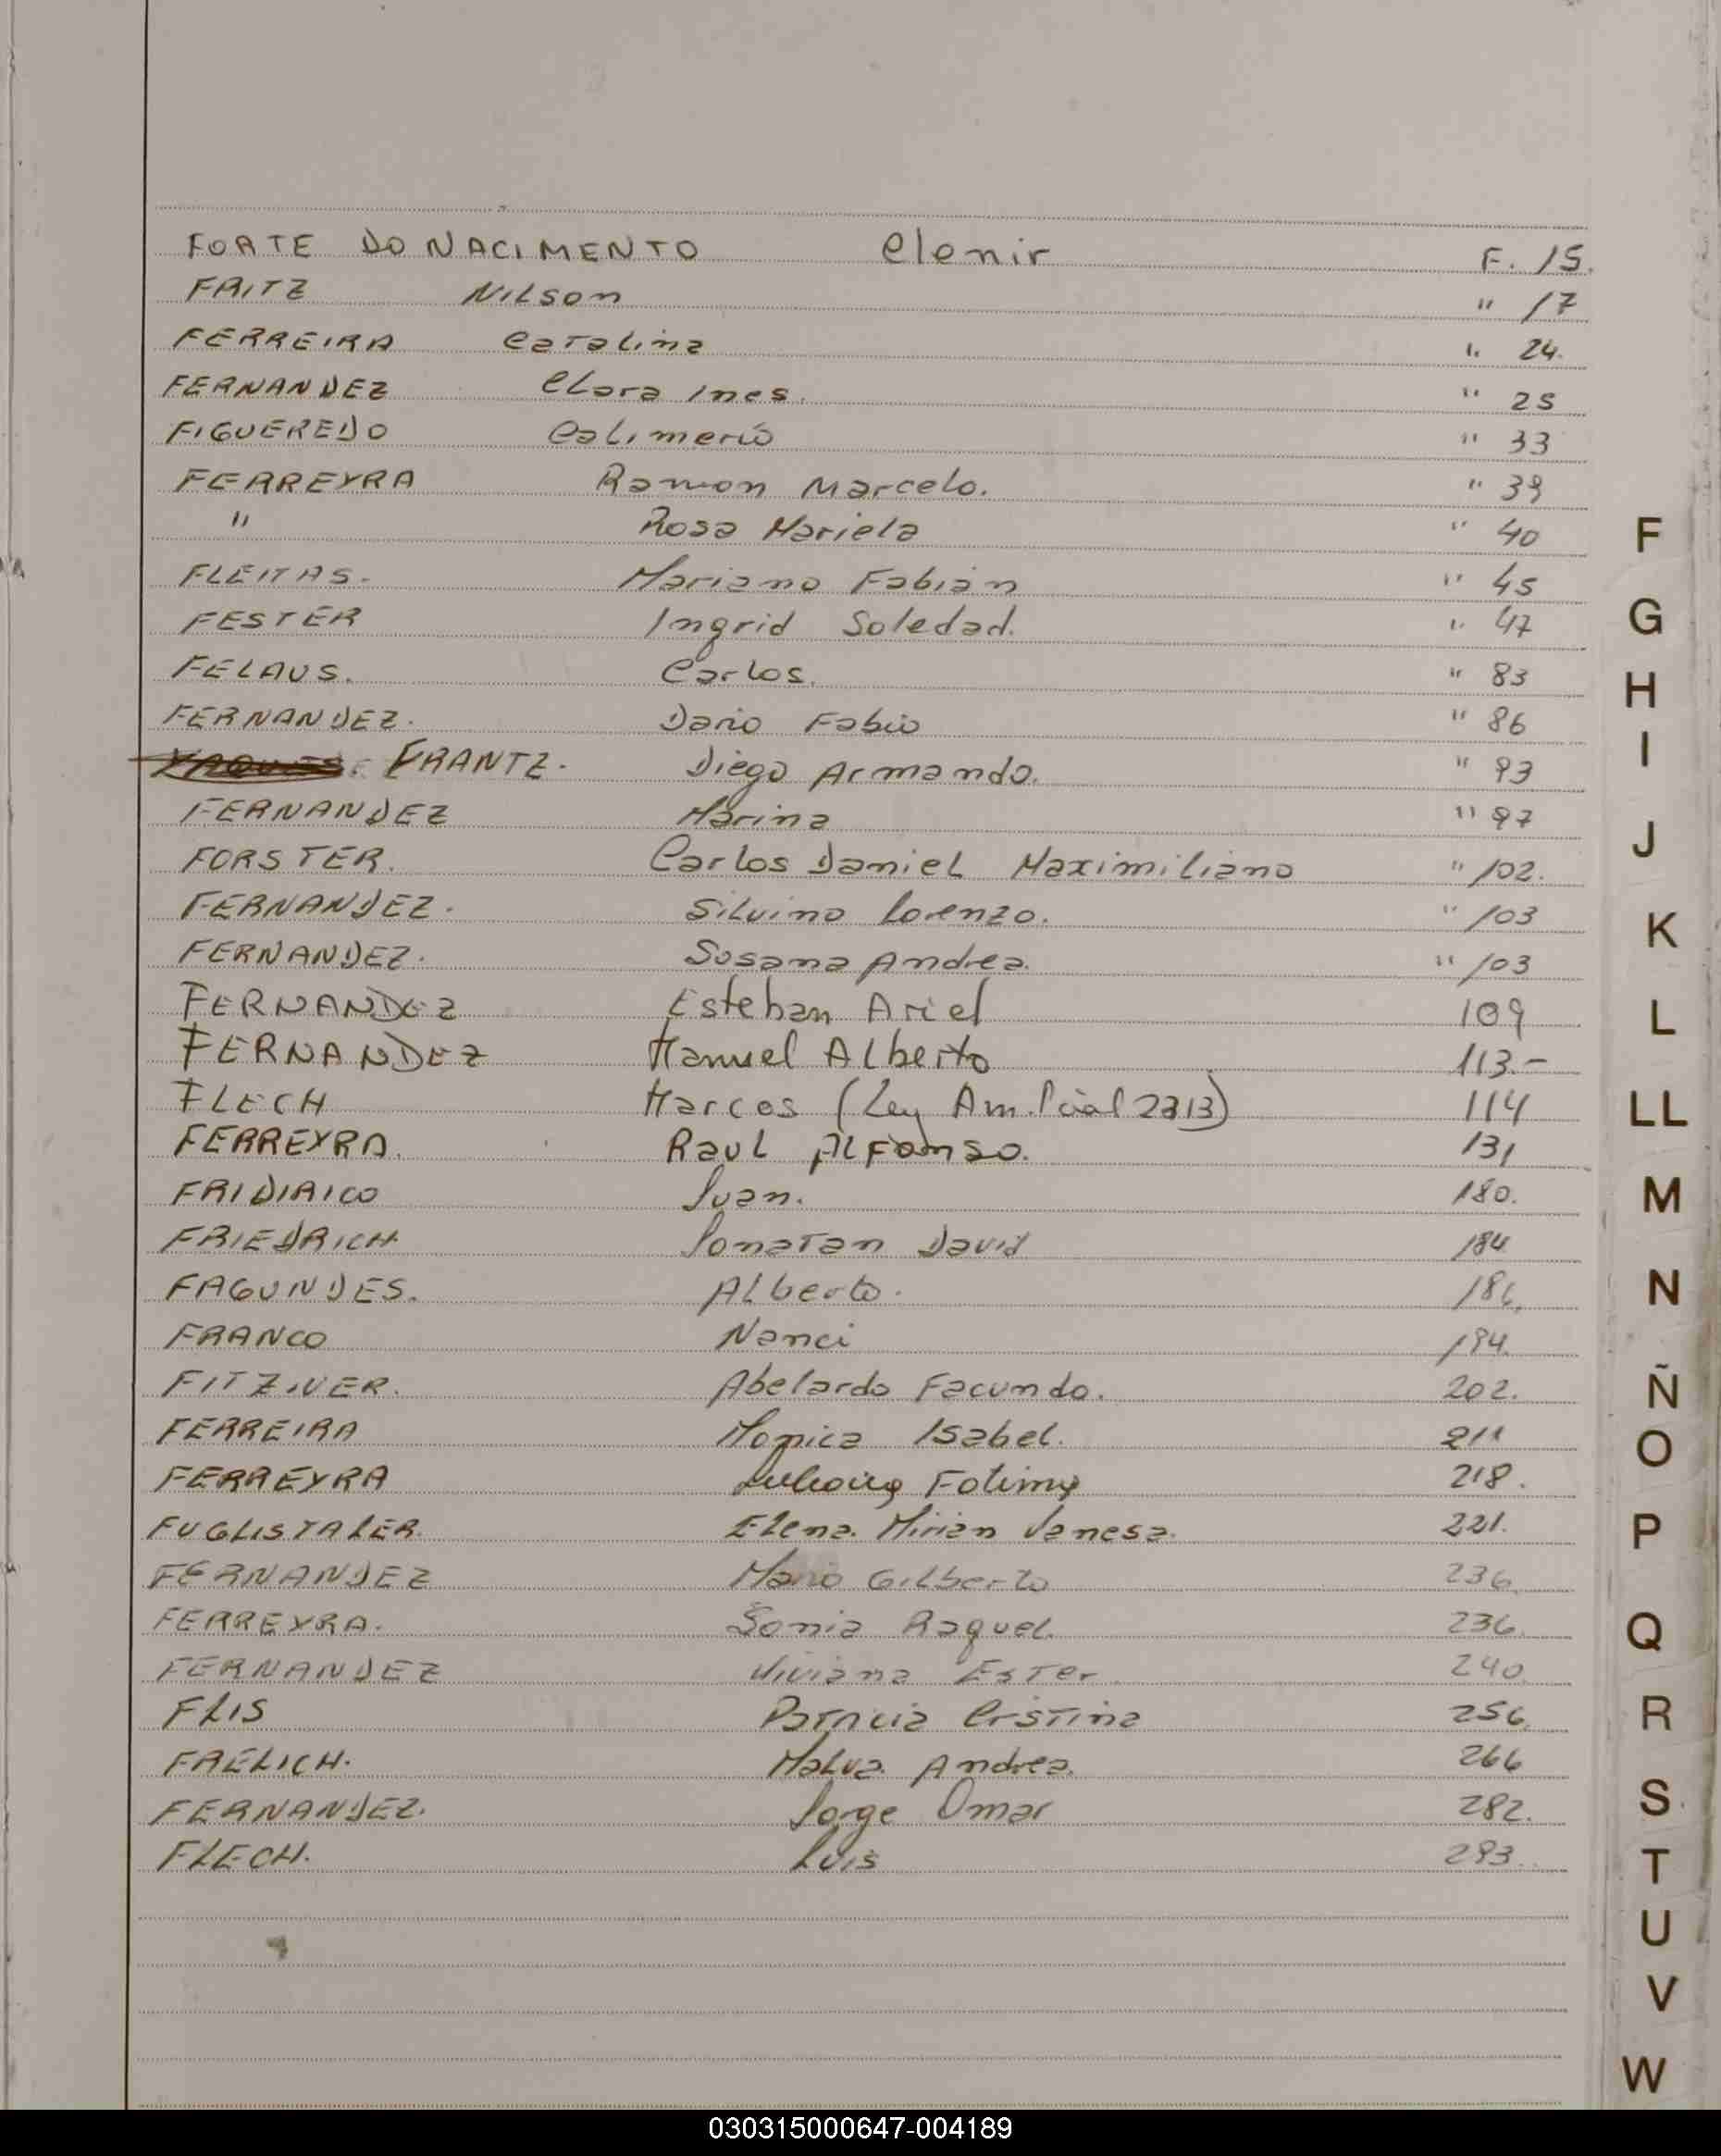 FORTE DO NACIMENTO Clenir F. 15.
FRITZ Nilson " 17
FERREIRA Catalina " 24.
FERNANDEZ Clara Ines. " 25
FIGUEREDO Calimerio " 33
FERREYRA Ramon Marcelo. " 39
" Rosa Mariela " 40
FLEITAS. Mariano Fabián " 45
FESTER Ingrid Soledad. " 47
FELAUS. Carlos. " 83
FERNANDEZ. Dario Fabio " 86
FRANTZ. Diego Armando. " 93
FERNANDEZ Marina " 97
FORSTER. Carlos Daniel Maximiliano " 102.
FERNANDEZ. Silvino Lorenzo. " 103
FERNANDEZ. Susana Andrea. " 103
FERNANDEZ Esteban Ariel 109
FERNANDEZ Manuel Alberto 113.-
FLECH Marcos (Ley Am. Pcial 2313) 114
FERREYRA. Raul Alfonso. 131
FRIDIRICO Juan. 180.
FRIEDRICH Jonatan David 184
FAGUNDES. Alberto. 186.
FRANCO Nanci 194.
FITZIVER. Abelardo Facundo. 202.
FERREIRA Monica Isabel. 211
FERREYRA Fatima 218.
FUGLISTALER. Elena Mirian Vanesa. 221.
FERNANDEZ Mario Gilberto 236.
FERREYRA. Sonia Raquel. 236.
FERNANDEZ Viviana Ester. 240.
FLIS Patricia Cristina 256.
FRELICH. Malva Andrea. 266
FERNANDEZ. Jorge Omar 282.
FLECH. Luis 293.
F
G
H
I
J
K
L
LL
M
N
Ñ
O
P
Q
R
S
T
U
V
W
030315000647-004189